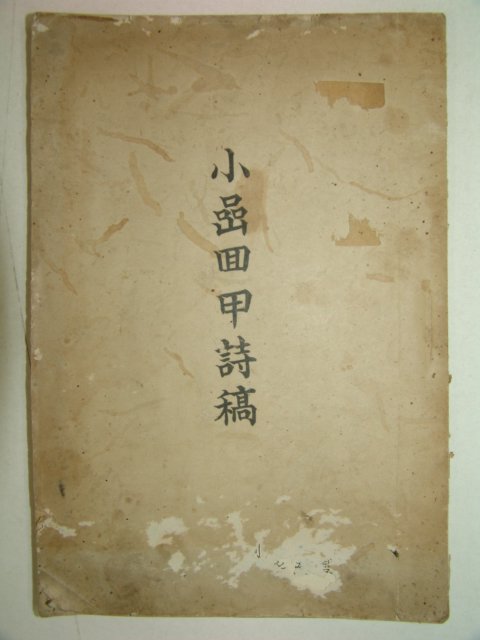 小嵒回甲詩稿